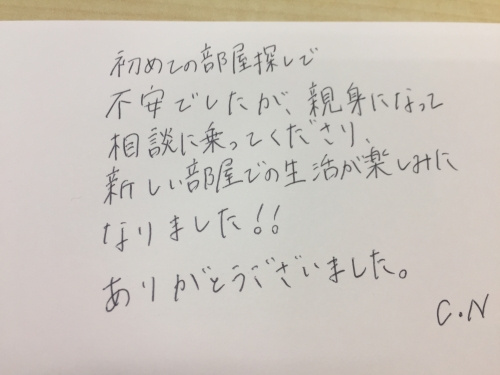 初めての部屋探しで
不安でしたが、親身になって
相談に乗ってくださり、
新しい部屋での生活が楽しみに
なりました!!
ありがとうございました。
C.N